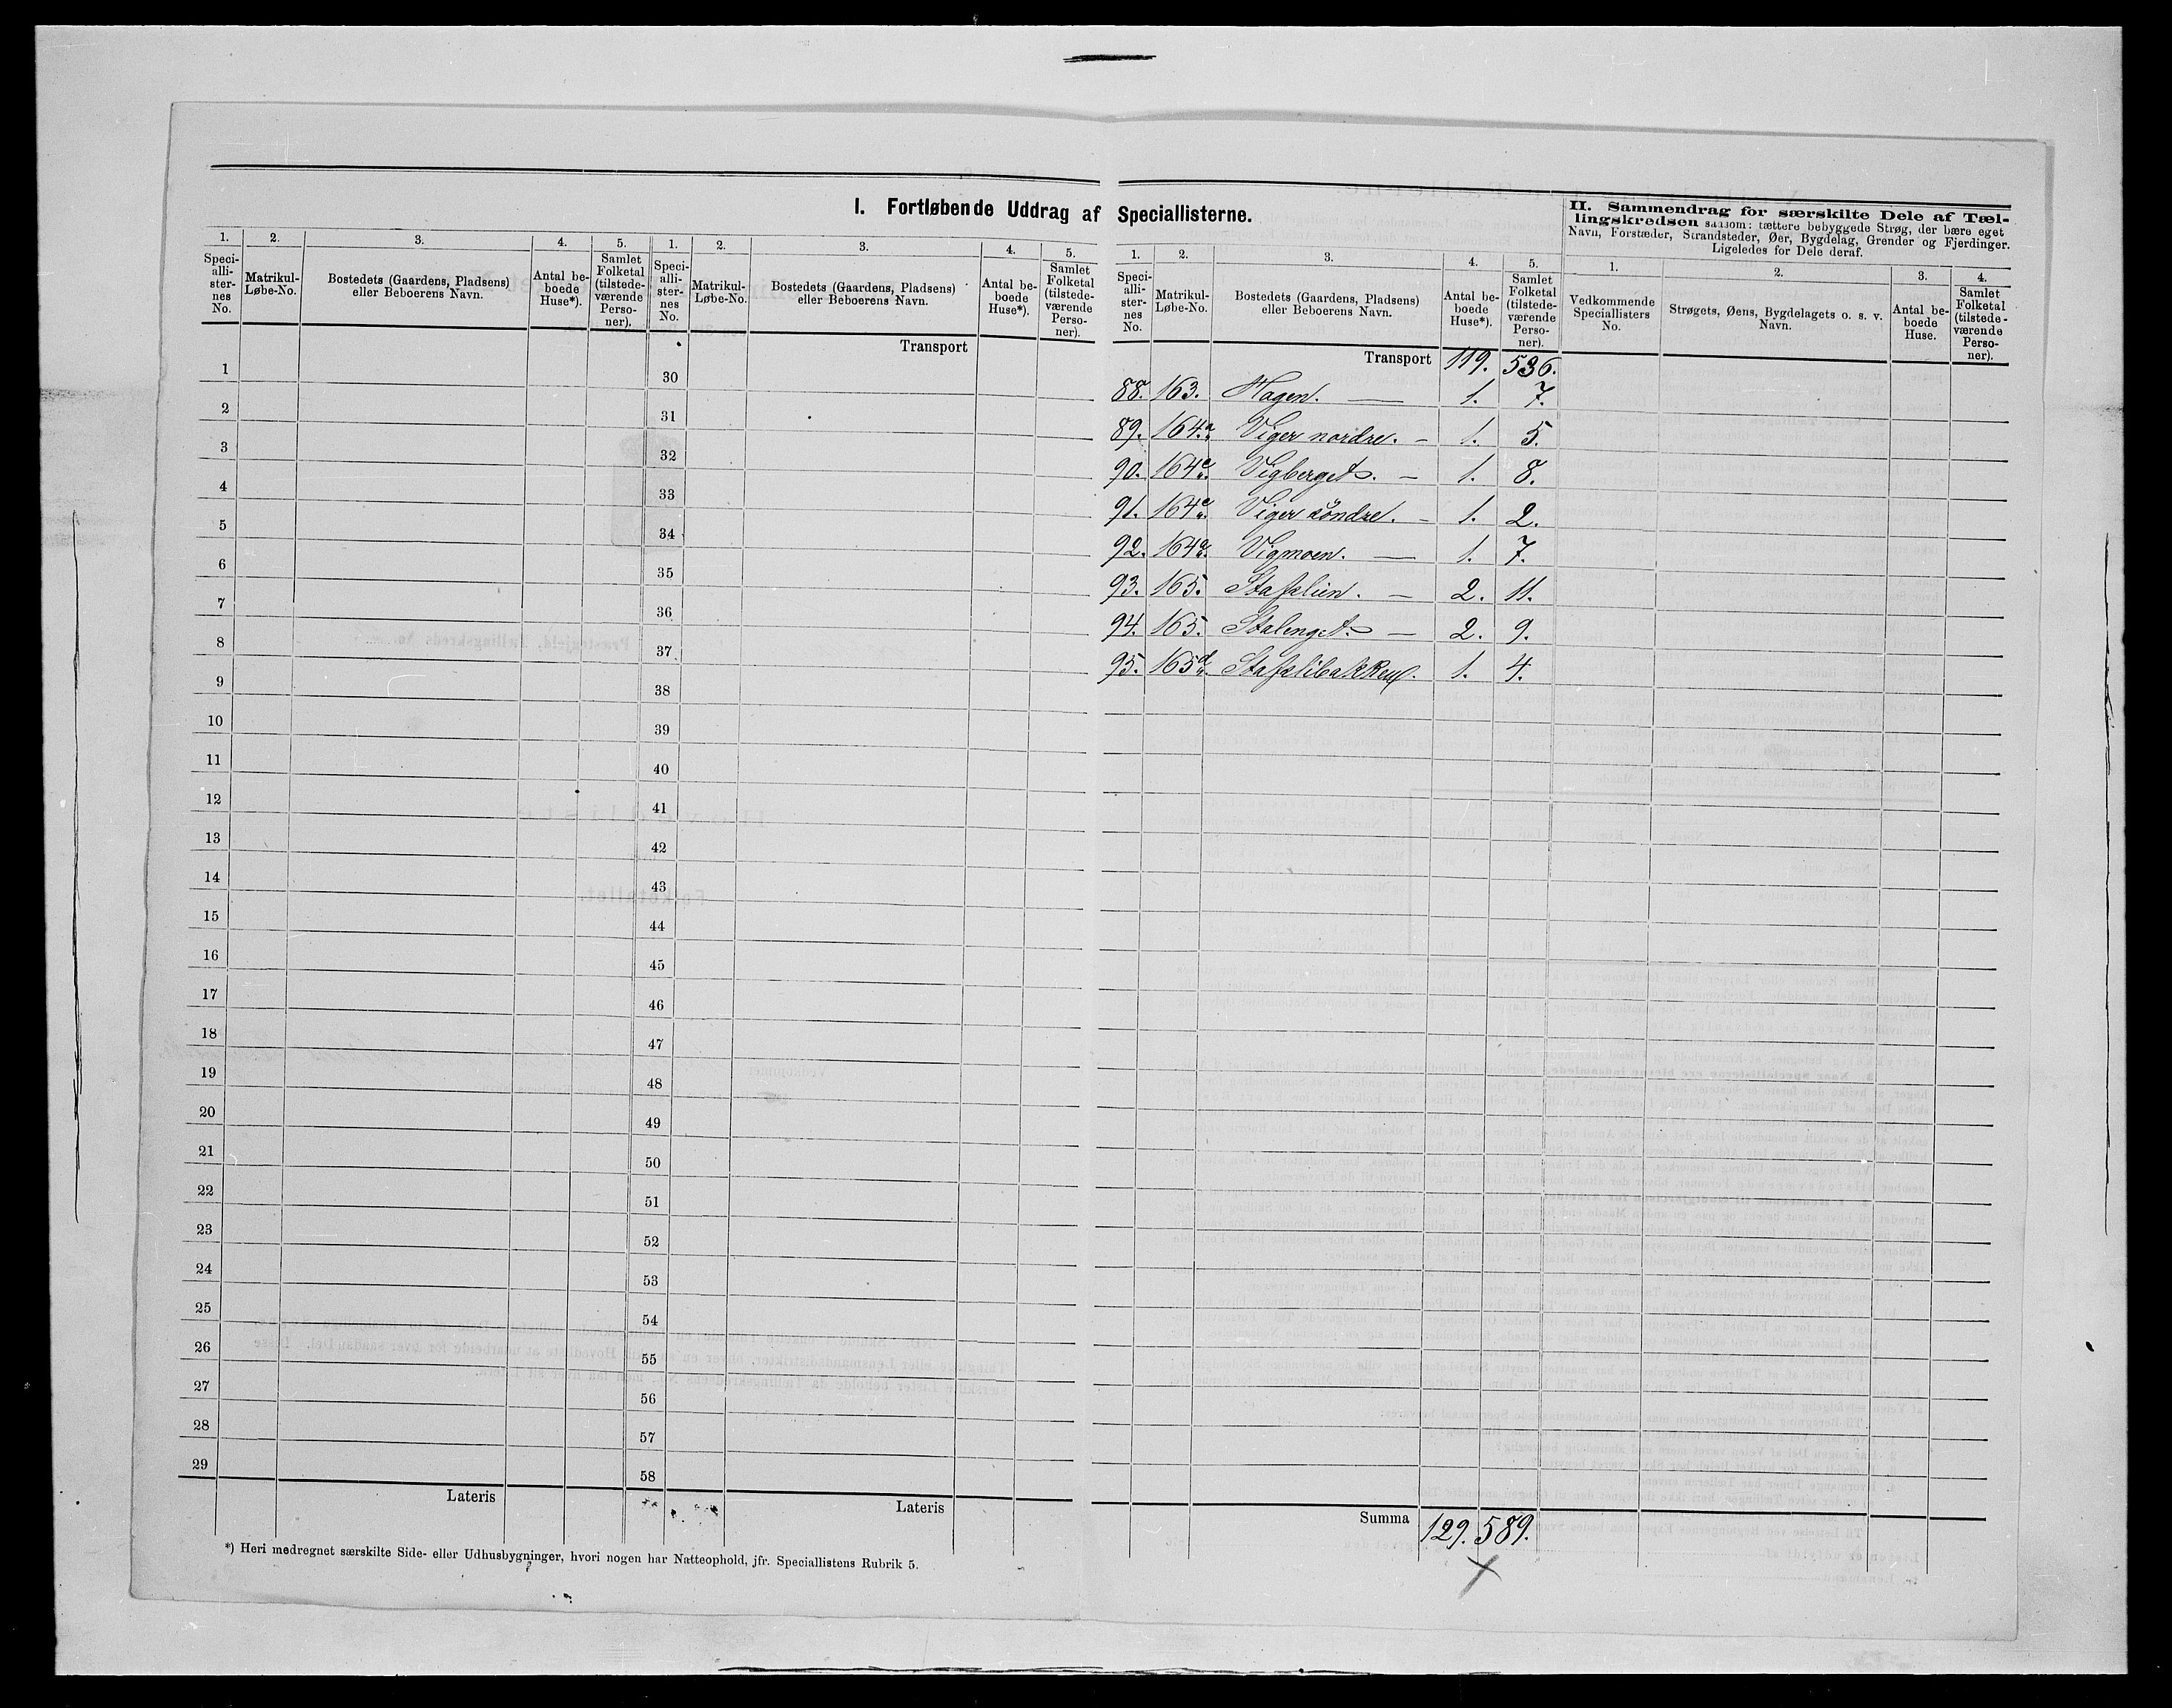 I. Fortløbende Uddrag af Speciallisterne.
II. Sammendrag for særskilte Dele af Tæl-
lingskredsen saasom: tættere bebyggede Strøg, der bære eget
Navn, Forstæder, Strandsteder, Øer, Bygdelag, Grender og Fjerdinger.
Ligeledes for Dele deraf.
1. 2. 3. 4. 5. 1. 2. 3. 4. 5.
Speci-alli-ster-nes No. Matrikul-Løbe-No. Bostedets (Gaardens, Pladsens) eller Beboerens Navn. Antal be-boede Huse*). Samlet Folketal (tilstede-værende Perso-ner).
Speci-alli-ster-nes No. Matrikul-Løbe-No. Bostedets (Gaardens, Pladsens) eller Beboerens Navn. Antal be-boede Huse*). Samlet Folketal (tilstede-værende Perso-ner).
Transport
1 30
2 31
3 32
4 33
5 34
6 35
7 36
8 37
9 38
10 39
11 40
12 41
13 42
14 43
15 44
16 45
17 46
18 47
19 48
20 49
21 50
22 51
23 52
24 53
25 54
26 55
27 56
28 57
29 58
Lateris Lateris
*) Heri medregnet særskilte Side- eller Udhusbygninger, hvori nogen har Natteophold, jfr. Speciallistens Rubrik 5.
1. 2. 3. 4. 5.
Speci-alli-ster-nes No. Matrikul-Løbe-No. Bostedets (Gaardens, Pladsens) eller Beboerens Navn. Antal be-boede Huse*). Samlet Folketal (tilstede-værende Perso-ner).
1. 2. 3. 4.
Vedkommende Speciallisters No. Strøgets, Øens, Bygdelagets o. s. v. Navn. Antal be-boede Huse. Samlet Folketal (tilstede-værende Perso-ner).
Transport 119. 536.
88. 163. Hagen. — 1. 7.
89. 164a. Viger nordre. — 1. 5.
90. 164e. Vigberget. — 1. 8.
91. 164c. Viger söndre. — 1. 2.
92. 164a. Vigmoen. — 1. 7.
93. 165. Stafslien. — 2. 11.
94. 165. Stalenget. — 2. 9.
95. 165d. Stafslibakken. 1. 4.
Summa 129. 589.